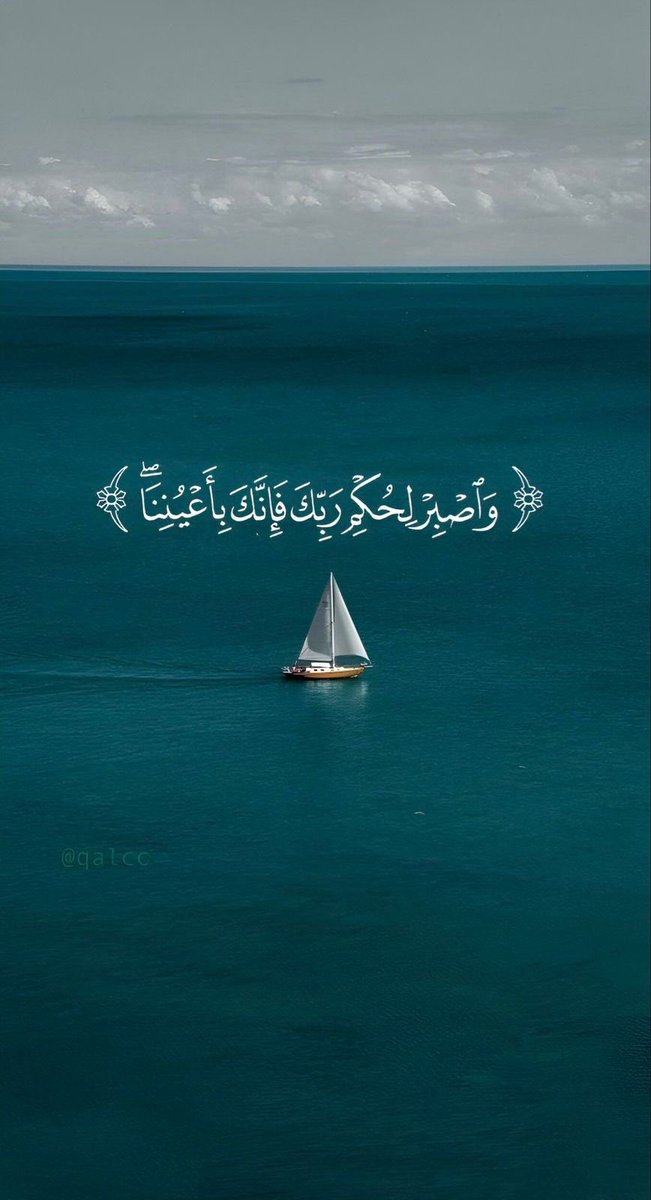 ﴿ وَٱصْبِرْ لِحُكْمِ رَبِّكَ فَإِنَّكَ بِأَعْيُنِنَا ۖ ﴾
@qalcc